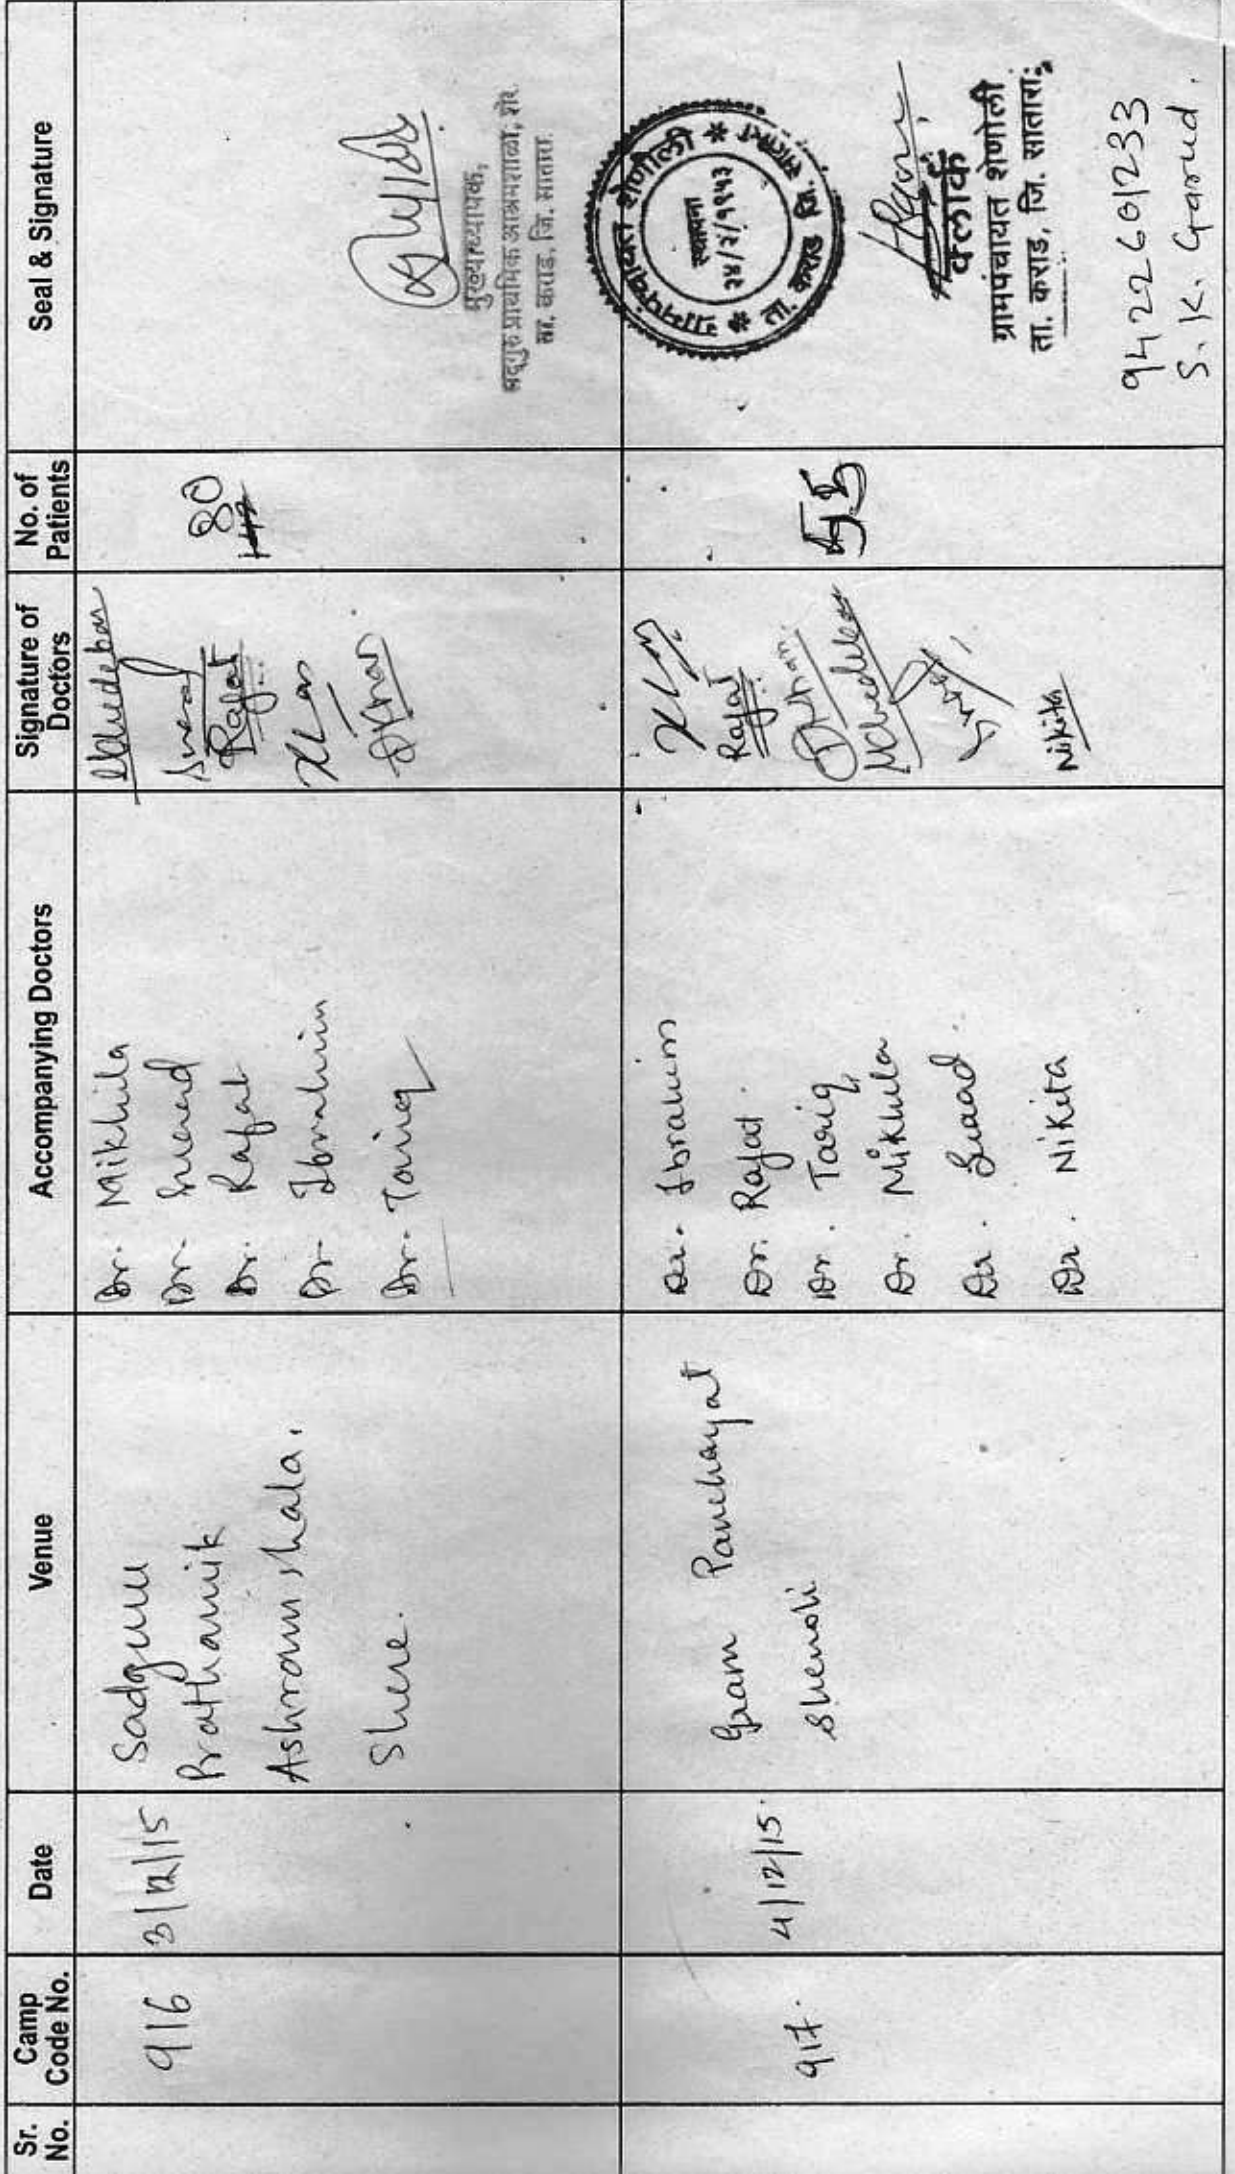 Sr. No.
Camp Code No.
Date
Venue
Accompanying Doctors
Signature of Doctors
No. of Patients
Seal & Signature
916
3/12/15
Sadguru
Prathamik
Ashramshala.
Shere.
Dr. Mikhila
Dr. Suead
Dr. Rajat
Dr. Ibrahim
Dr. Tariq
Rajat
80
142
मुख्याध्यापक,
सद्गुरु प्राथमिक आश्रमशाळा, शेरे
ता. कराड, जि. सातारा
917.
4/12/15.
Gram Panchayat
Shenoli
Dr. Ibrahim
Dr. Rajat.
Dr. Tariq
Dr. Mikhila
Dr. Suaad..
Dr. Nikita
Rajat
Nikita
55
ग्रामपंचायत शेणोली
स्थापना
२४/२/१९५३
ता. कराड जि. सातारा
क्लार्क
ग्रामपंचायत शेणोली
ता. कराड, जि. सातारा:
9422601233
S. K. Garud.